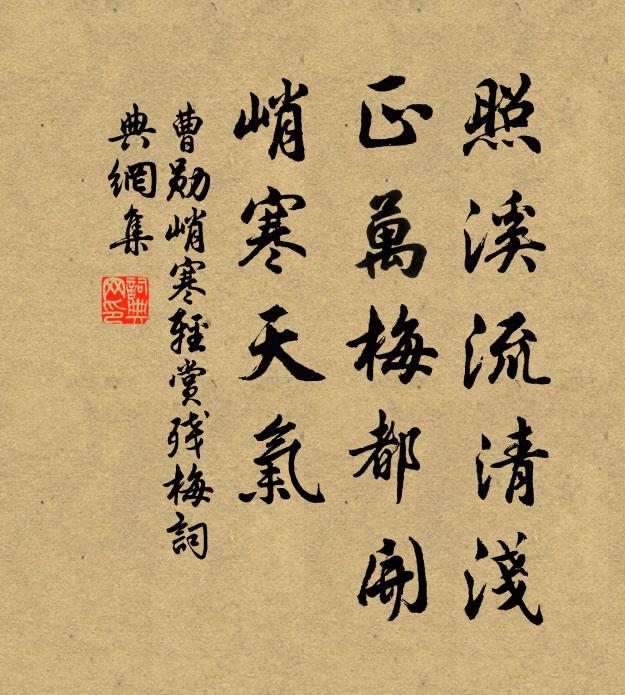 照溪流清淺
正萬梅都開
峭寒天氣
曹勛峭寒輕賞残梅詞
典網集
詞典
网印